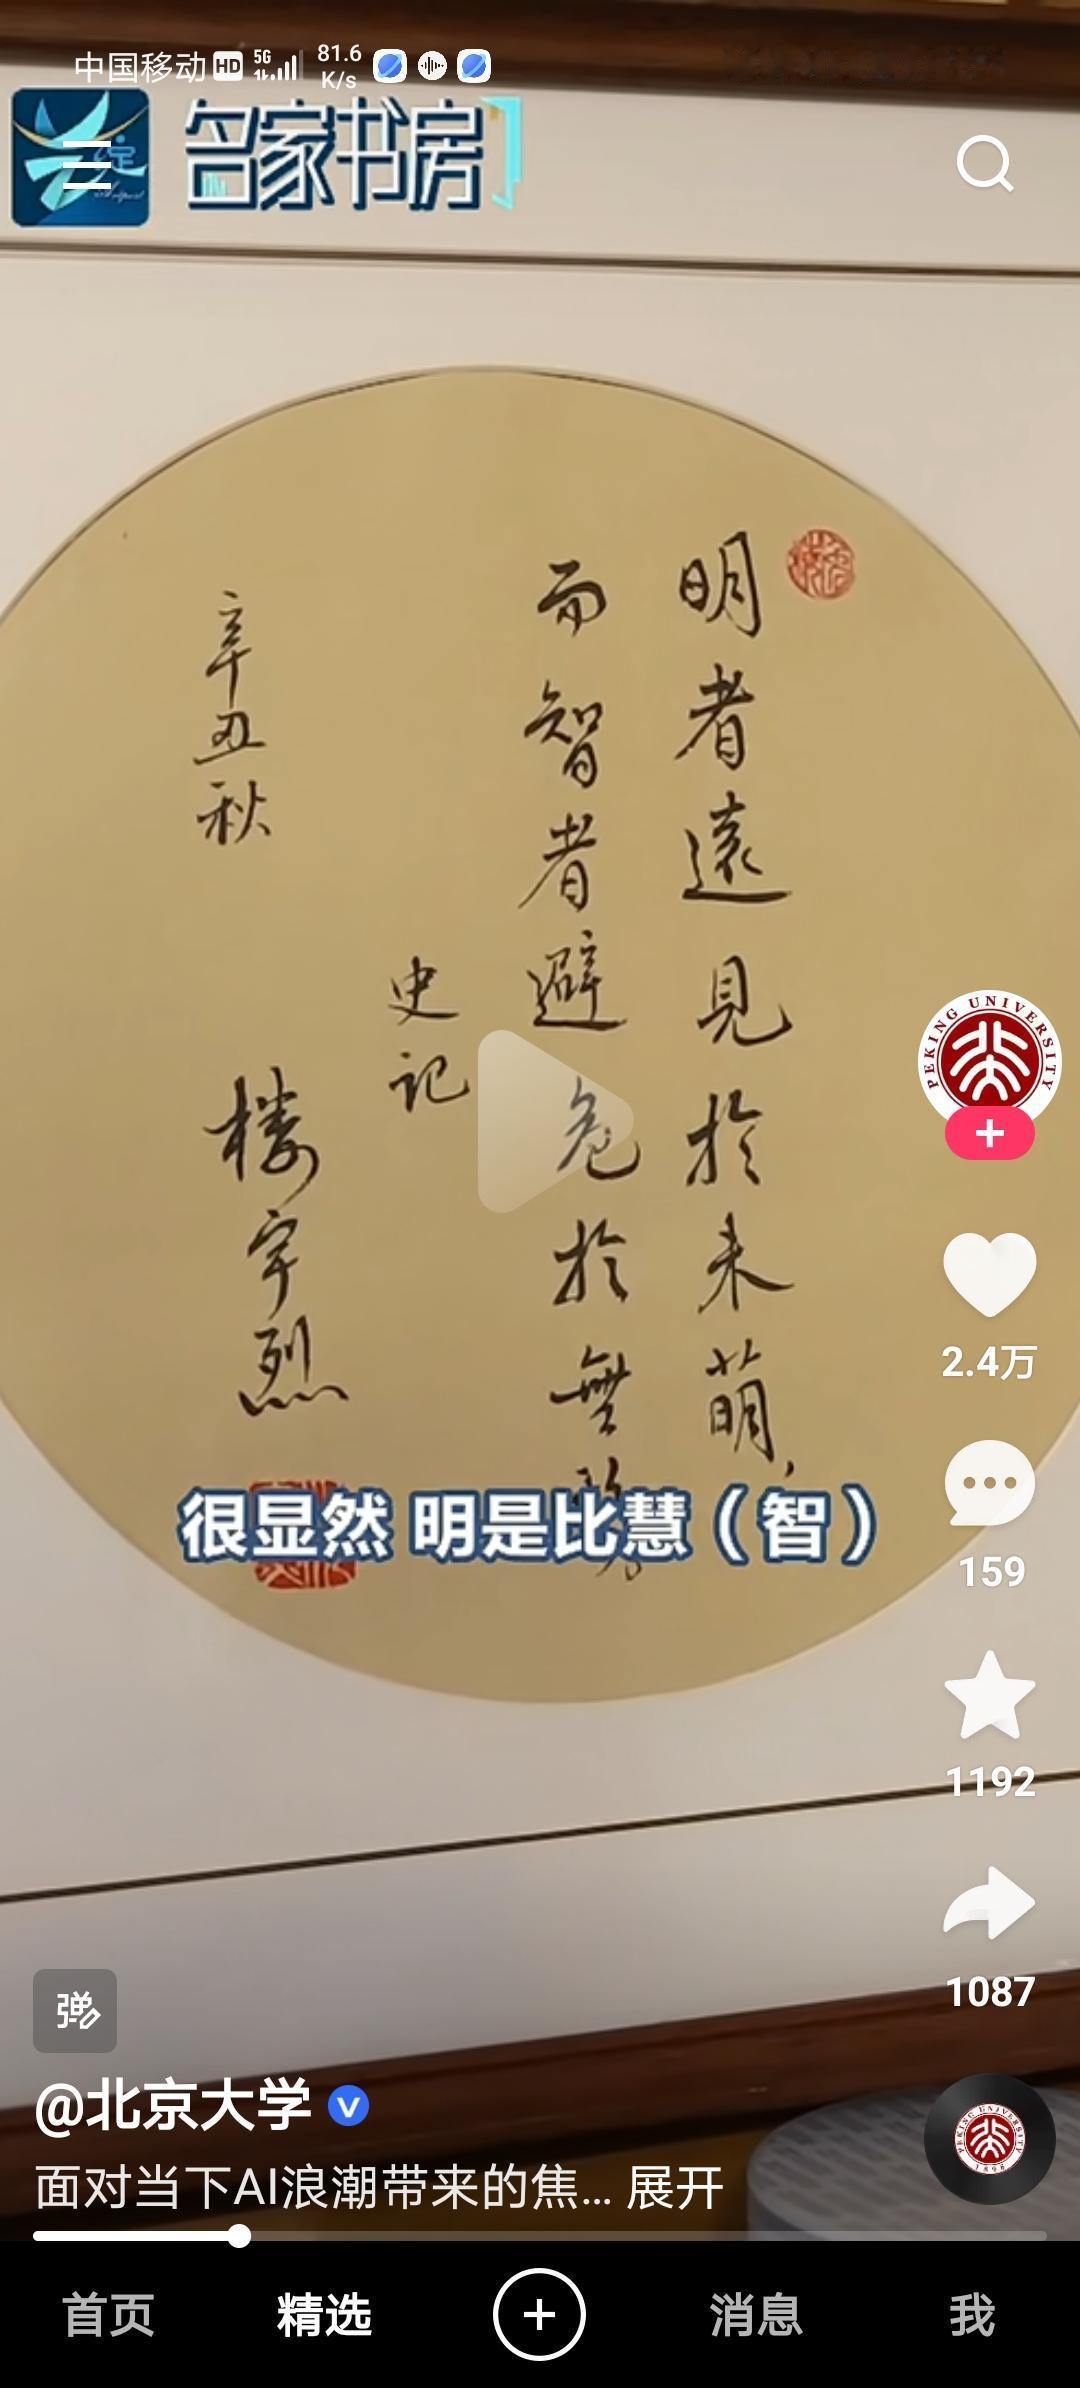 中国移动 HD 5G 81.6 K/s
名家书房
明者遠見於未萌，
而智者避危於無
史记
辛丑秋
楼宇烈
很显然 明是比慧（智）
PEKING UNIVERSITY
2.4万
159
1192
1087
弹
@北京大学
面对当下AI浪潮带来的焦... 展开
首页 精选 消息 我